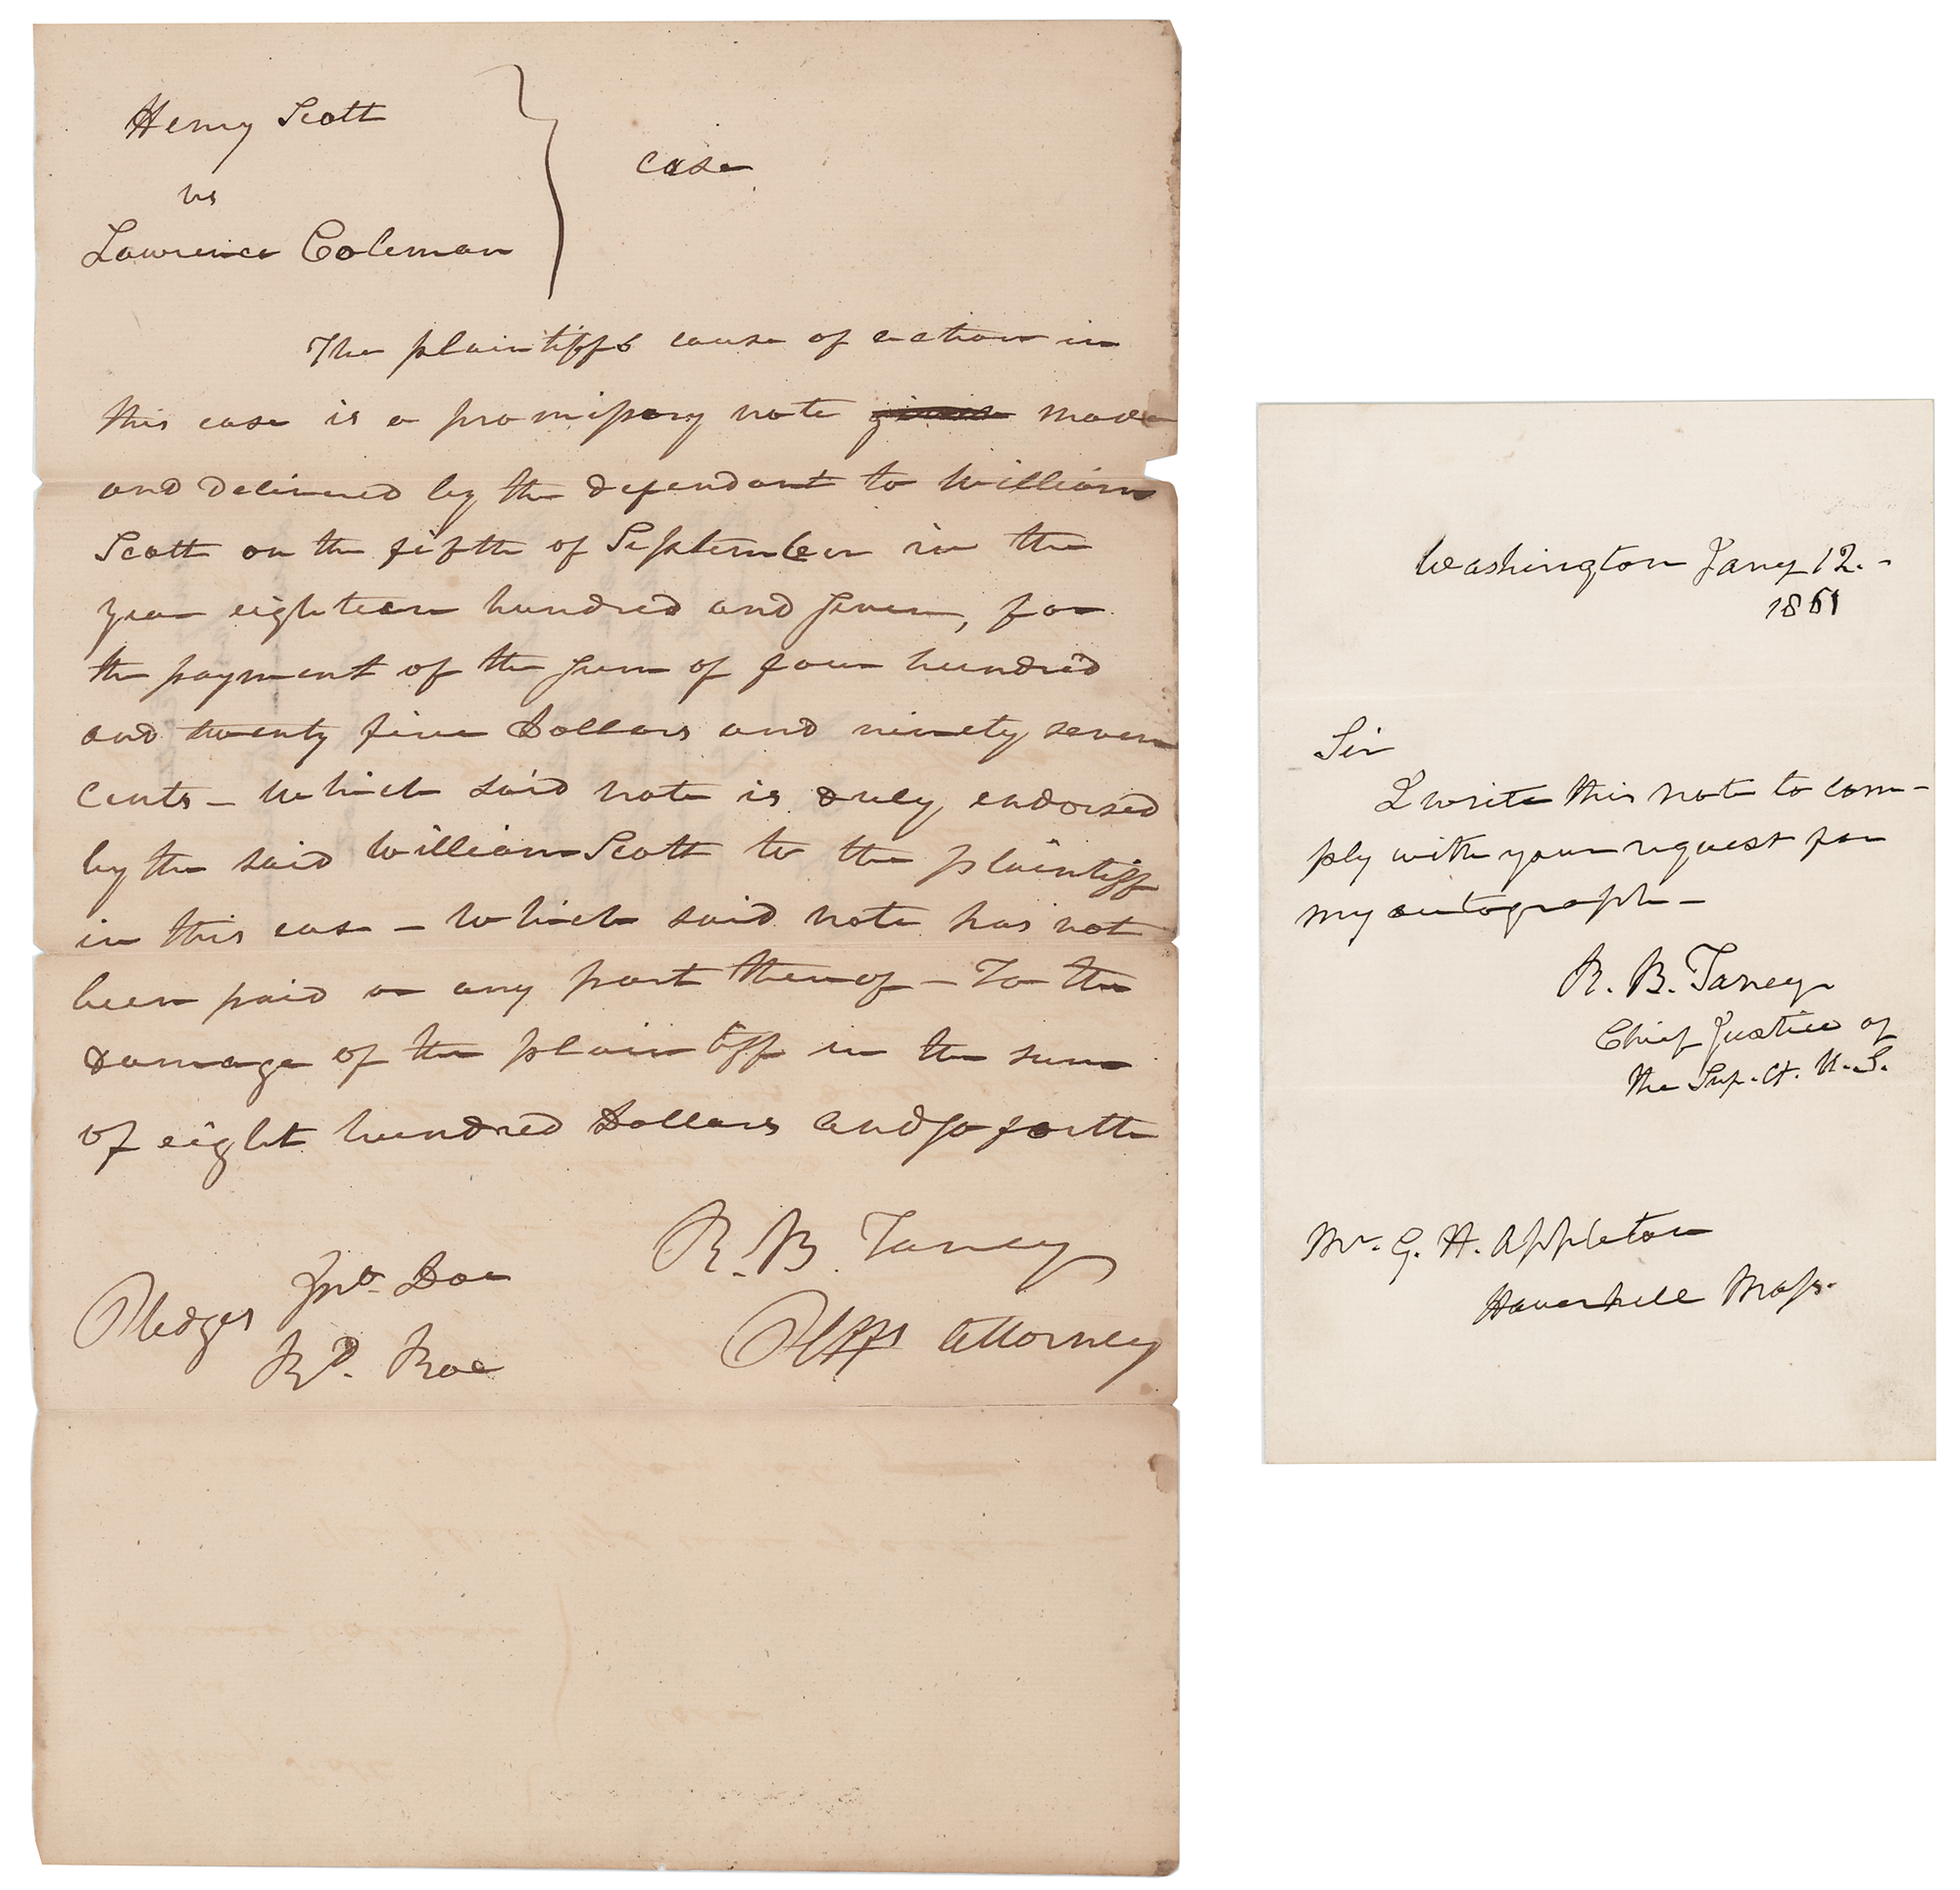 Henry Scott
vs
Lawrence Coleman
case
The plaintiffs cause of action in
this case is a promissory note given made
and delivered by the defendant to William
Scott on the fifth of September in the
year eighteen hundred and seven, for
the payment of the sum of four hundred
and twenty five Dollars and ninety seven
cents – Which said note is duly endorsed
by the said William Scott to the plaintiff
in this case – Which said note has not
been paid or any part thereof – To the
damage of the plaintiff in the sum
of eight hundred Dollars and so forth
R. B. Taney
Plffs Attorney
Pledges Jno. Doe
Rd. Roe
Washington Jany 12. -
1861
Sir
I write this note to com-
ply with your request for
my autograph –
R. B. Taney
Chief Justice of
the Sup. Ct. U. S.
Mr. G. H. Appleton
Haverhill Mass.